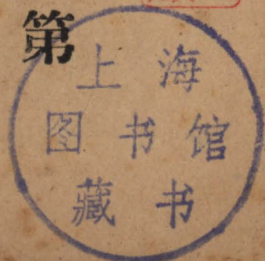 第
上海
图书馆
藏书